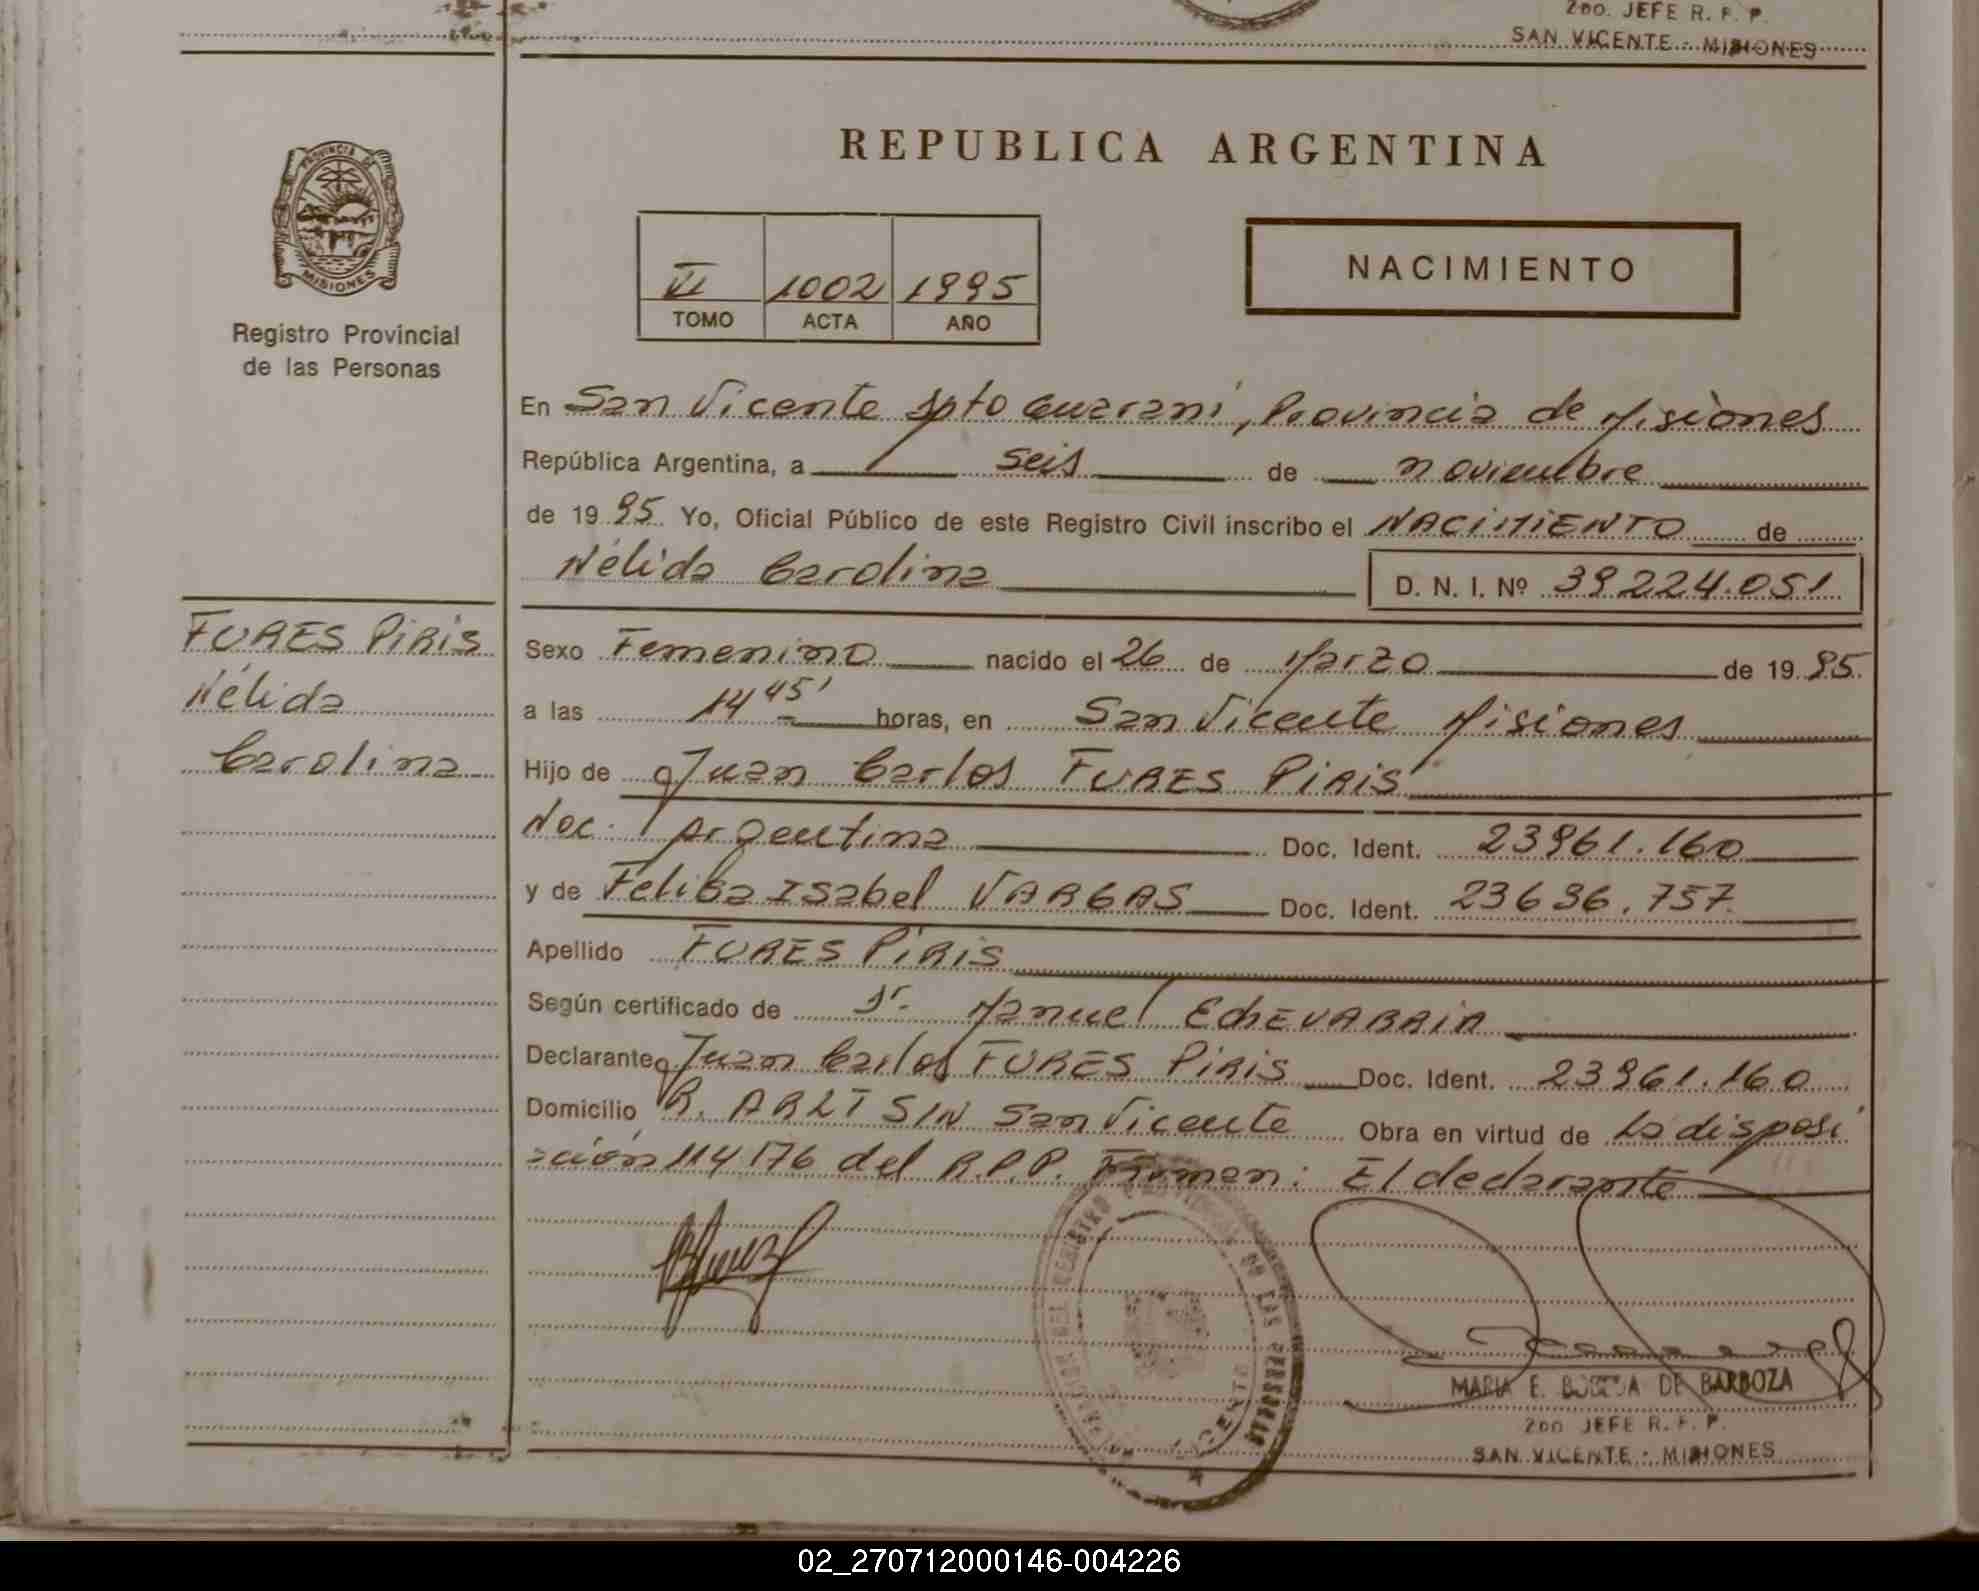 2DO. JEFE R. P. P.
SAN VICENTE - MISIONES
REPUBLICA ARGENTINA
PROVINCIA DE
MISIONES
Registro Provincial
de las Personas
VI 1002 1995
TOMO ACTA AÑO
NACIMIENTO
En San Vicente Dpto Guarani, Provincia de Misiones
República Argentina, a seis de noviembre
de 1995 Yo, Oficial Público de este Registro Civil inscribo el NACIMIENTO de
Nélida Carolina D. N. I. Nº 39224.051
FURES PIRIS
Nélida
Carolina
Sexo Femenino nacido el 26 de Marzo de 1995
a las 14 45' horas, en San Vicente Misiones
Hijo de Juan Carlos FURES PIRIS
Nac. Argentina Doc. Ident. 23961.160
y de Felisa Isabel VARGAS Doc. Ident. 23696.757
Apellido FURES PIRIS
Según certificado de Dr. Manuel EChEVARRIA
Declarante Juan Carlos FURES PIRIS Doc. Ident. 23961.160
Domicilio R. ARLT S/N San Vicente Obra en virtud de la disposi
=ción 114/76 del R.P.P. Firman: El declarante
MARIA E. DE BARBOZA
2DO JEFE R. P. P.
SAN VICENTE - MISIONES
02_270712000146-004226